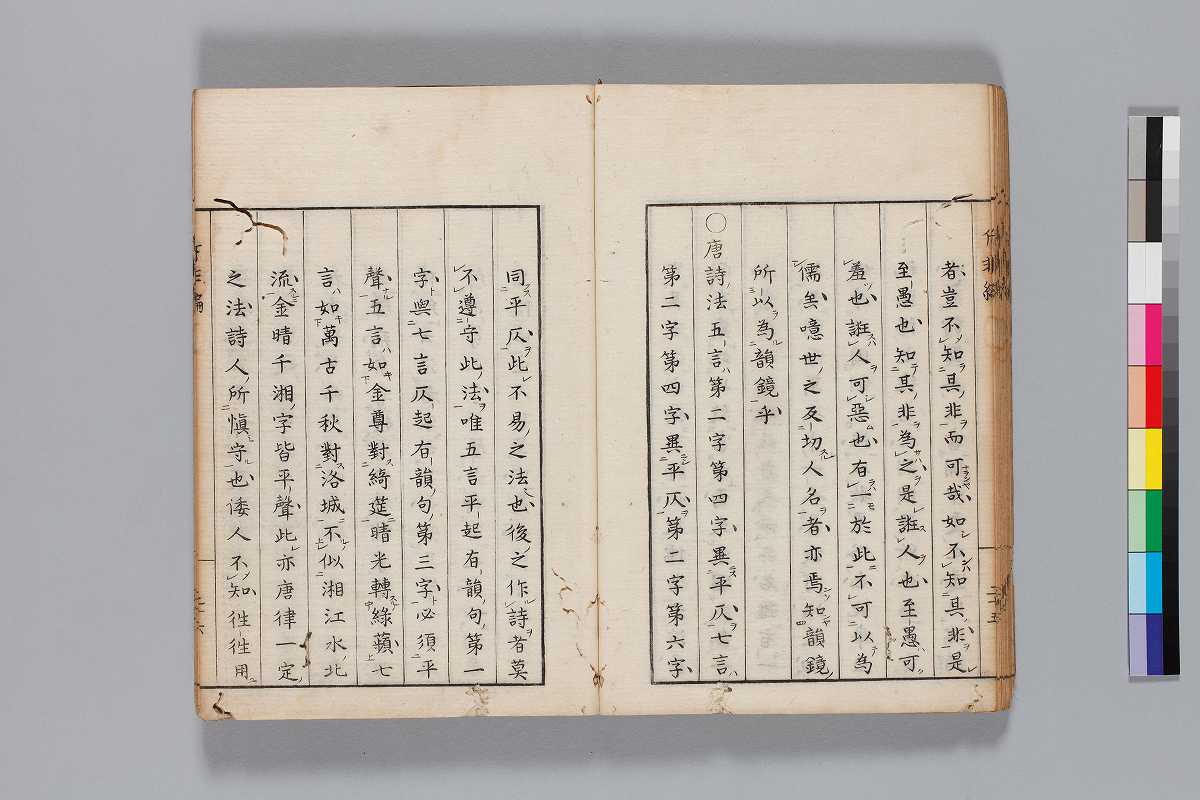 者豈不知其非而可哉如不知其非是
至愚也知其非為之是誑人也至愚可
羞也誑人可惡也有一於此不可以為
儒矣噫世之反切人名者亦焉知韻鏡
所以為韻鏡乎
〇唐詩法五言第二字第四字異平仄七言
第二字第四字異平仄第二字第六字
同平仄此不易之法也後之作詩者莫
不遵守此法唯五言平起有韻句第一
字與七言仄起有韻句第三字必須平
聲五言如金尊對綺筵晴光轉綠蘋七
言如萬古千秋對洛城不似湘江水北
流金晴千湘字皆平聲此亦唐律一定
之法詩人所慎守也倭人不知徃徃用